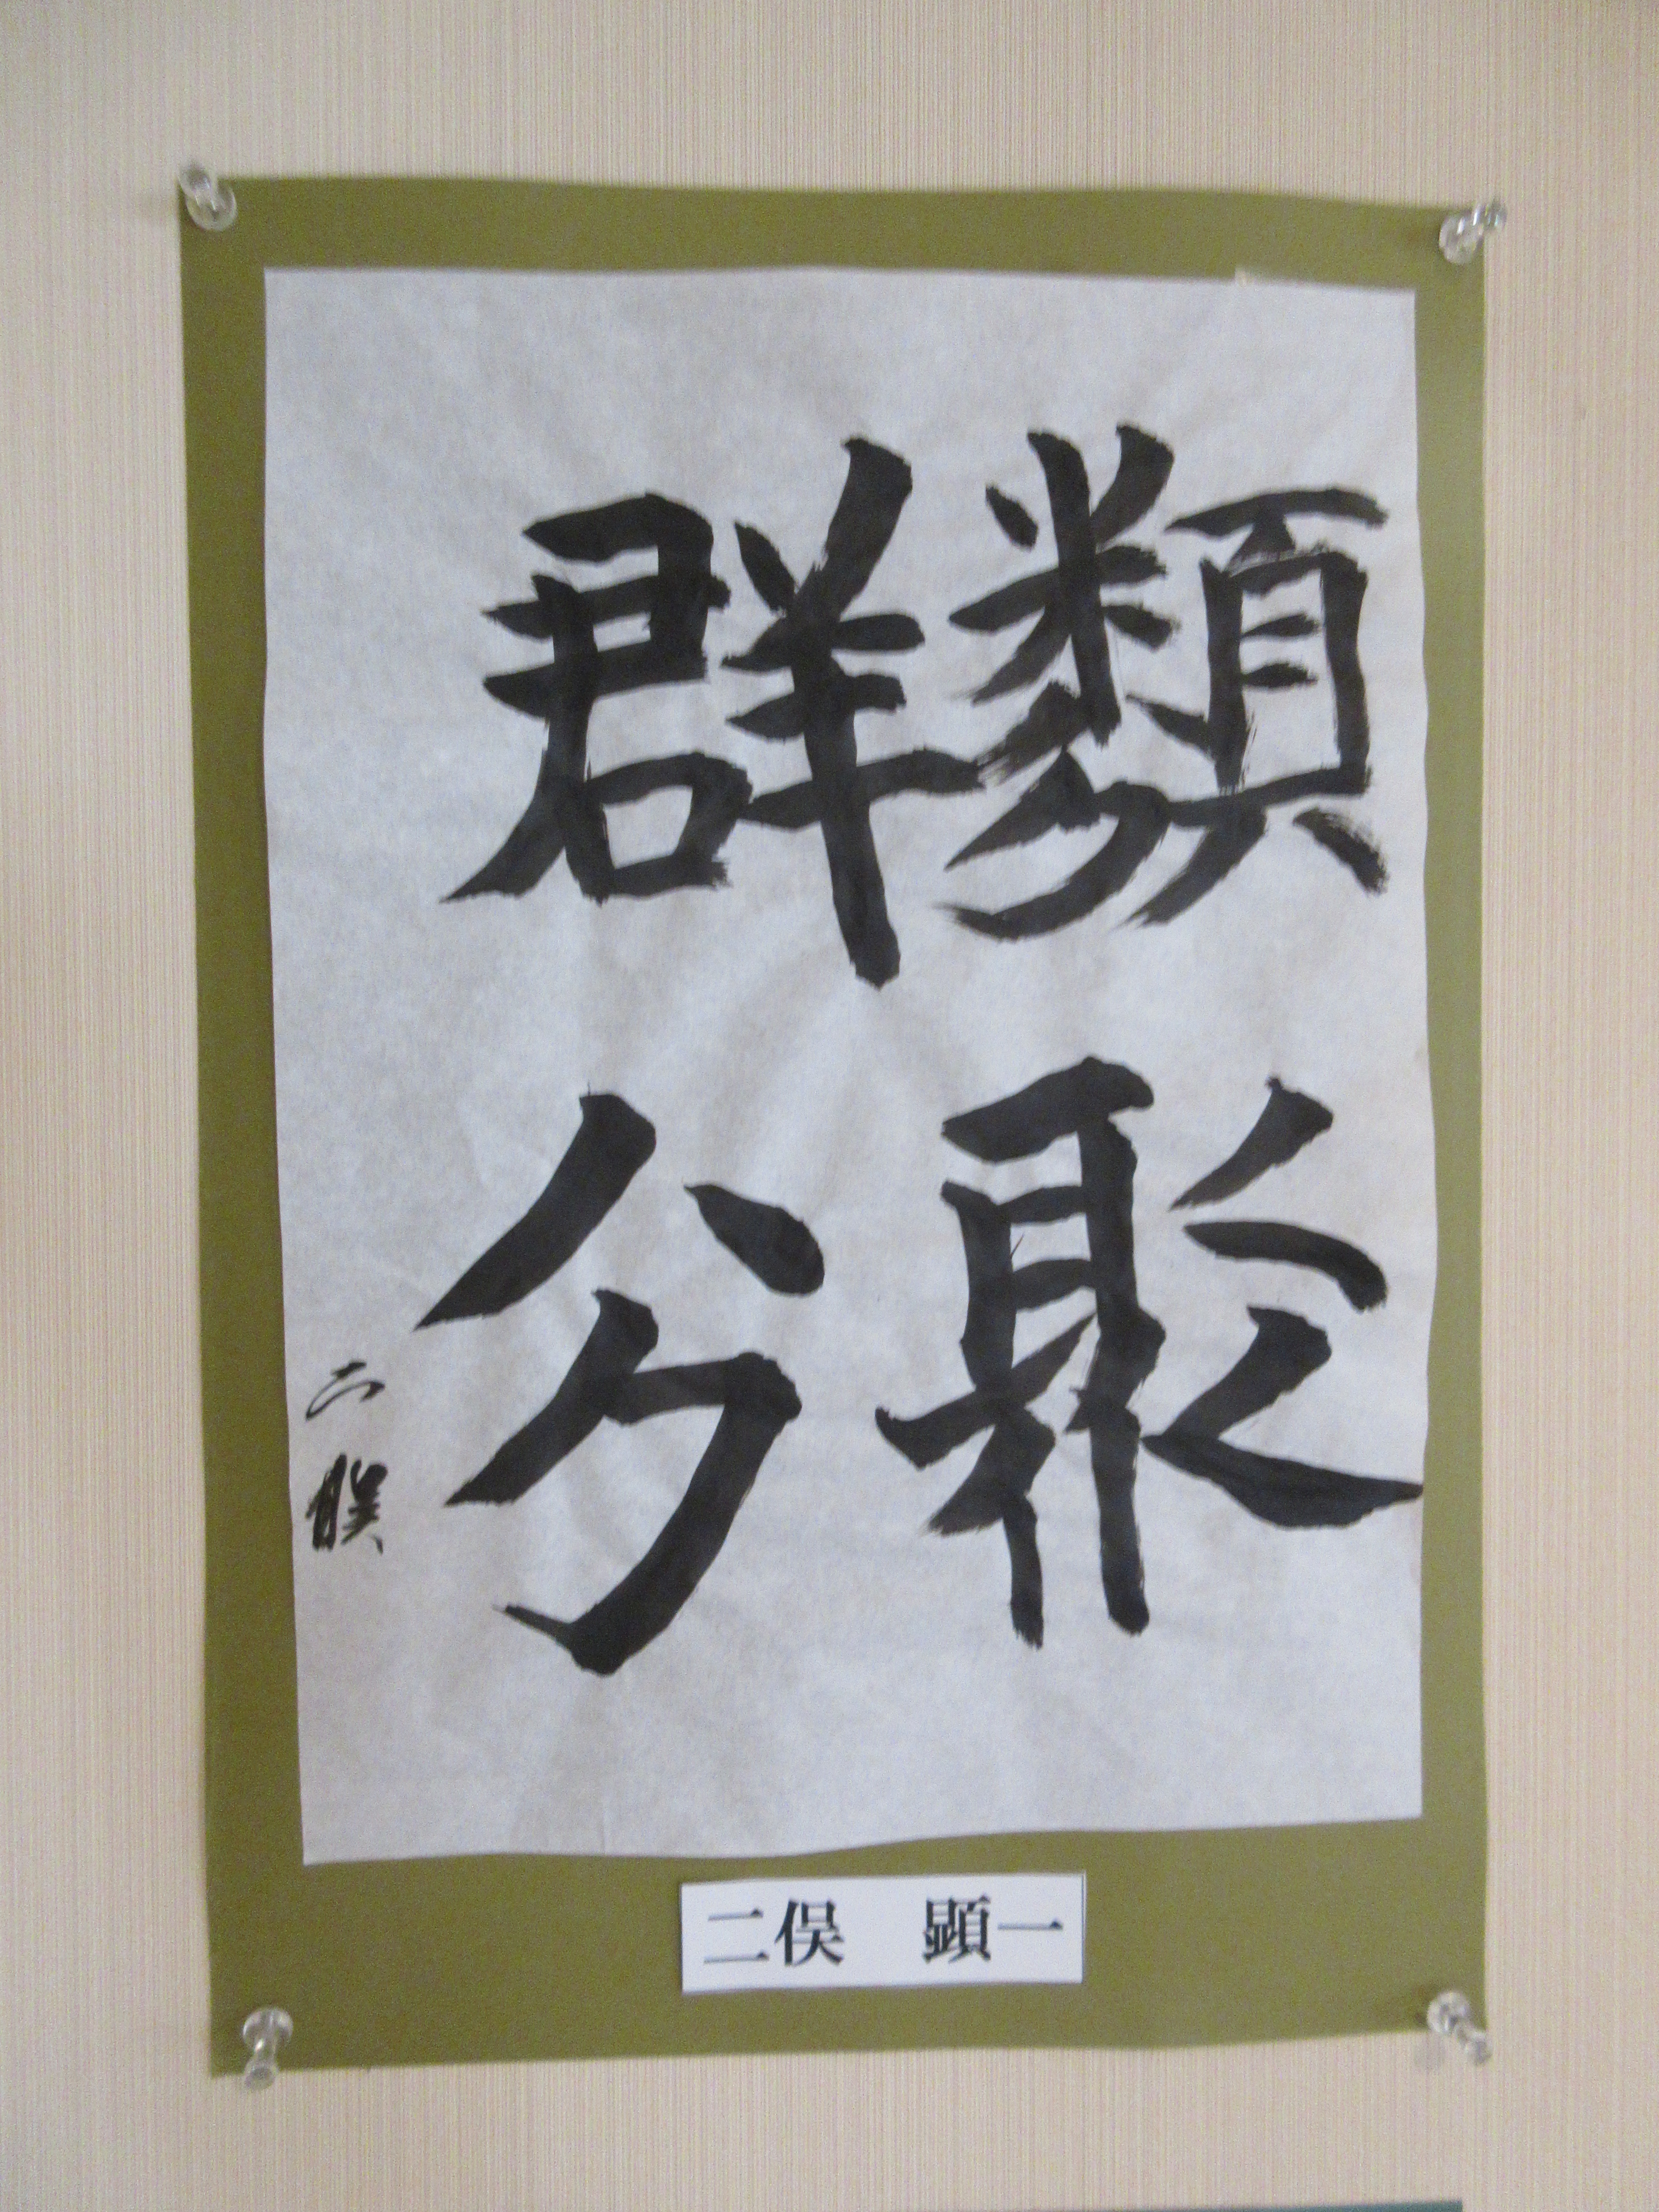 類聚
群分
二俣
二俣 顕一